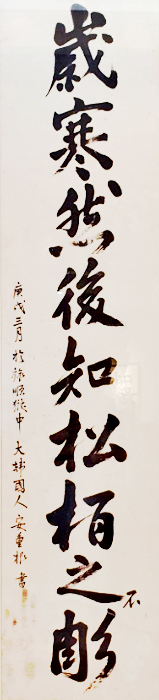 歲寒然後知松栢之不彫
庚戌三月於旅順獄中 大韓國人 安重根 書